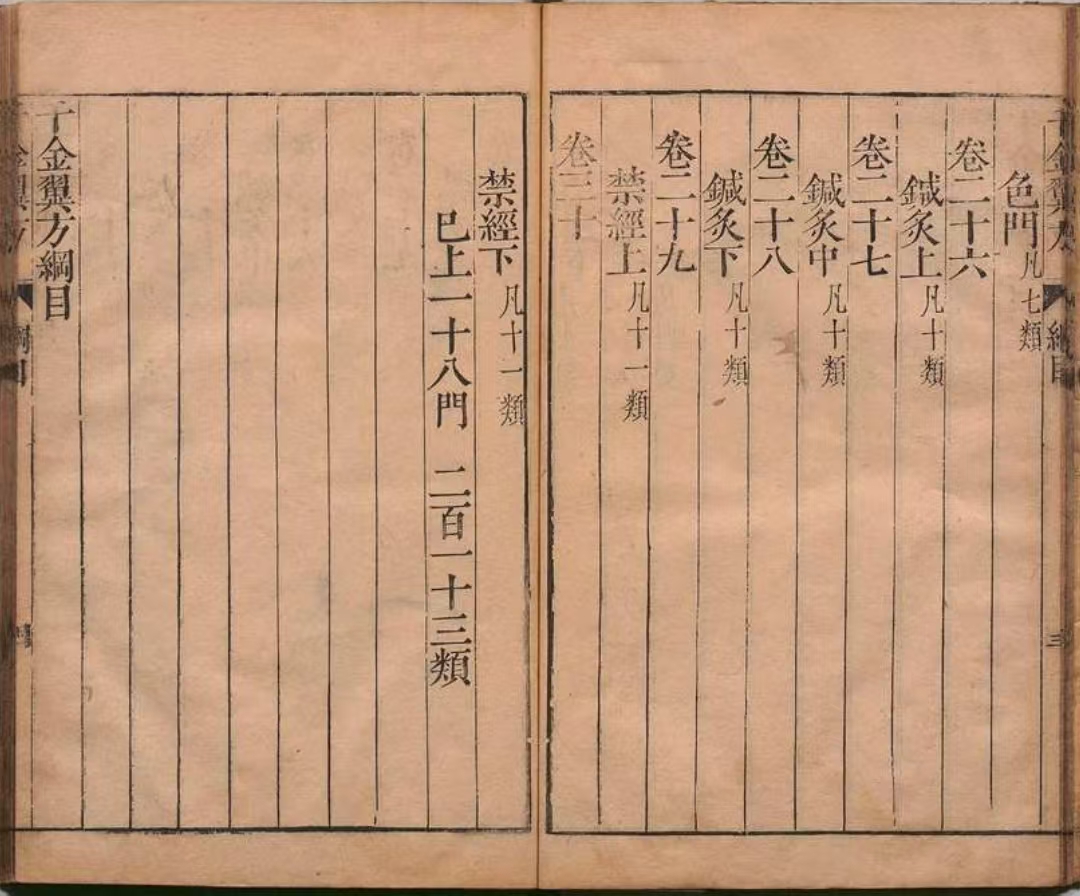 色門凡七類
卷二十六
鍼灸上凡十類
卷二十七
鍼灸中凡十類
卷二十八
鍼灸下凡十類
卷二十九
禁經上凡十一類
卷三十
禁經下凡十一類
巳上一十八門　二百一十三類
千金翼方綱目